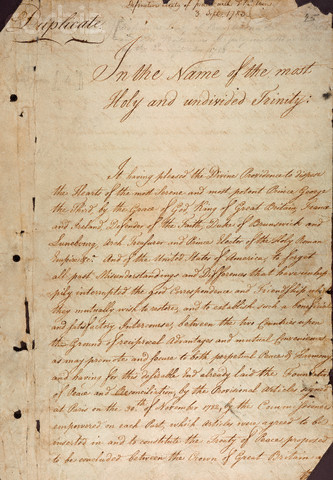 Definitive treaty of peace with Gt. Britain
3 Sept. 1783
25
Duplicate.
In the Name of the most
Holy and undivided Trinity:
It having pleased the Divine Providence to dispose
the Hearts of the most Serene and most potent Prince George
the Third, by the Grace of God, King of Great Britain, France
and Ireland, Defender of the Faith, Duke of Brunswick and
Lunebourg, Arch Treasurer and Prince Elector of the Holy Roman
Empire &c. And of the United States of America, to forget
all past Misunderstandings and Differences that have unhap
pily interrupted the good Correspondence and Friendship which
they mutually wish to restore; and to establish such a beneficial
and satisfactory Intercourse between the two Countries upon
the Ground of reciprocal Advantages and mutual Convenience
as may promote and secure to both perpetual Peace & Harmony
and having for this desirable End already laid the Foundation
of Peace and Reconciliation by the Provisional Articles signed
at Paris on the 30th of November 1782, by the Commissioners
empowered on each Part, which Articles were agreed to be
inserted in and to constitute the Treaty of Peace proposed
to be concluded between the Crown of Great Britain